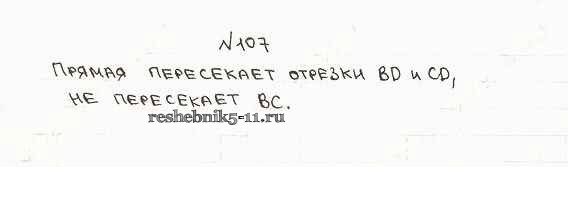 №107
ПРЯМАЯ ПЕРЕСЕКАЕТ ОТРЕЗКИ BD И CD,
НЕ ПЕРЕСЕКАЕТ BC.
reshebnik5-11.ru